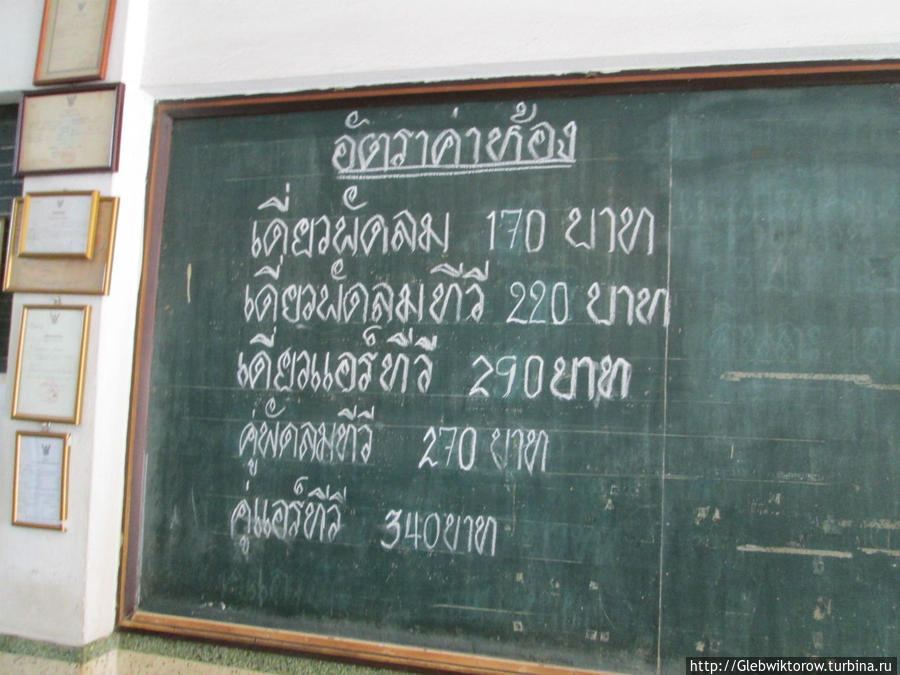 อัตราค่าห้อง
เดี่ยวพัดลม 170 บาท
เดี่ยวพัดลมทีวี 220 บาท
เดี่ยวแอร์ทีวี 290 บาท
คู่พัดลมทีวี 270 บาท
คู่แอร์ทีวี 340 บาท
http://Glebwiktorow.turbina.ru/